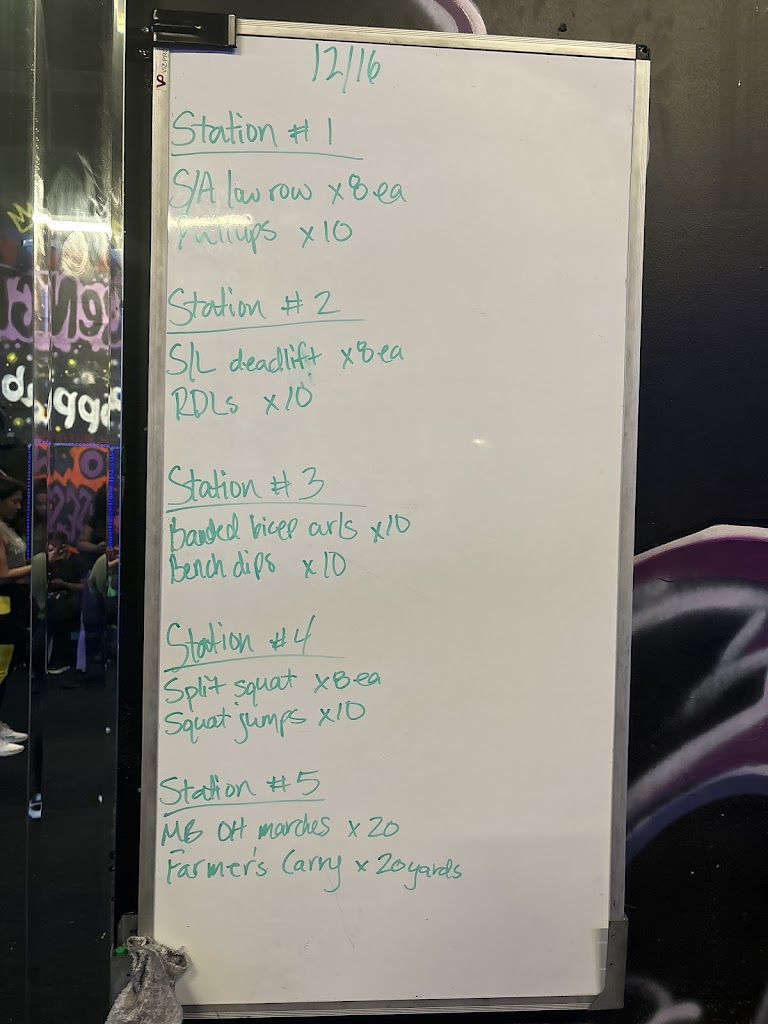 12/16
Station # 1
S/A low row x8ea
Pullups x10
Station # 2
S/L deadlift x8ea
RDLs x10
Station # 3
Banded bicep curls x10
Bench dips x10
Station #4
Split squat x8ea
Squat jumps x10
Station #5
MB OH marches x 20
Farmer's Carry x 20yards